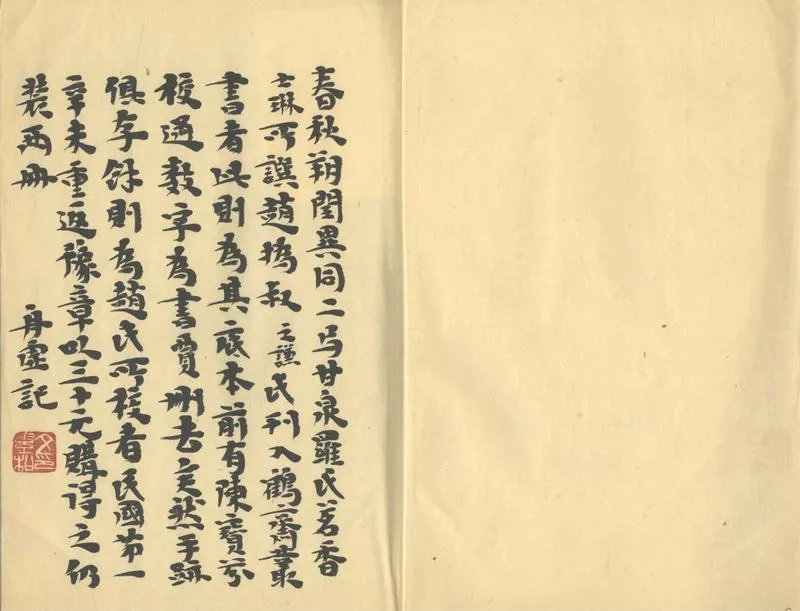 春秋朔閏異同二弓甘泉羅氏茗香
士琳所譔趙撝叔之謙氏刊入鶴齋叢
書者此則為其底本前有陳寶
校過數字為書賈刪去然手跡
俱存餘則為趙氏所校者民國第一
辛未重返豫章以三十元購得之仍
裝兩冊
舟虛記